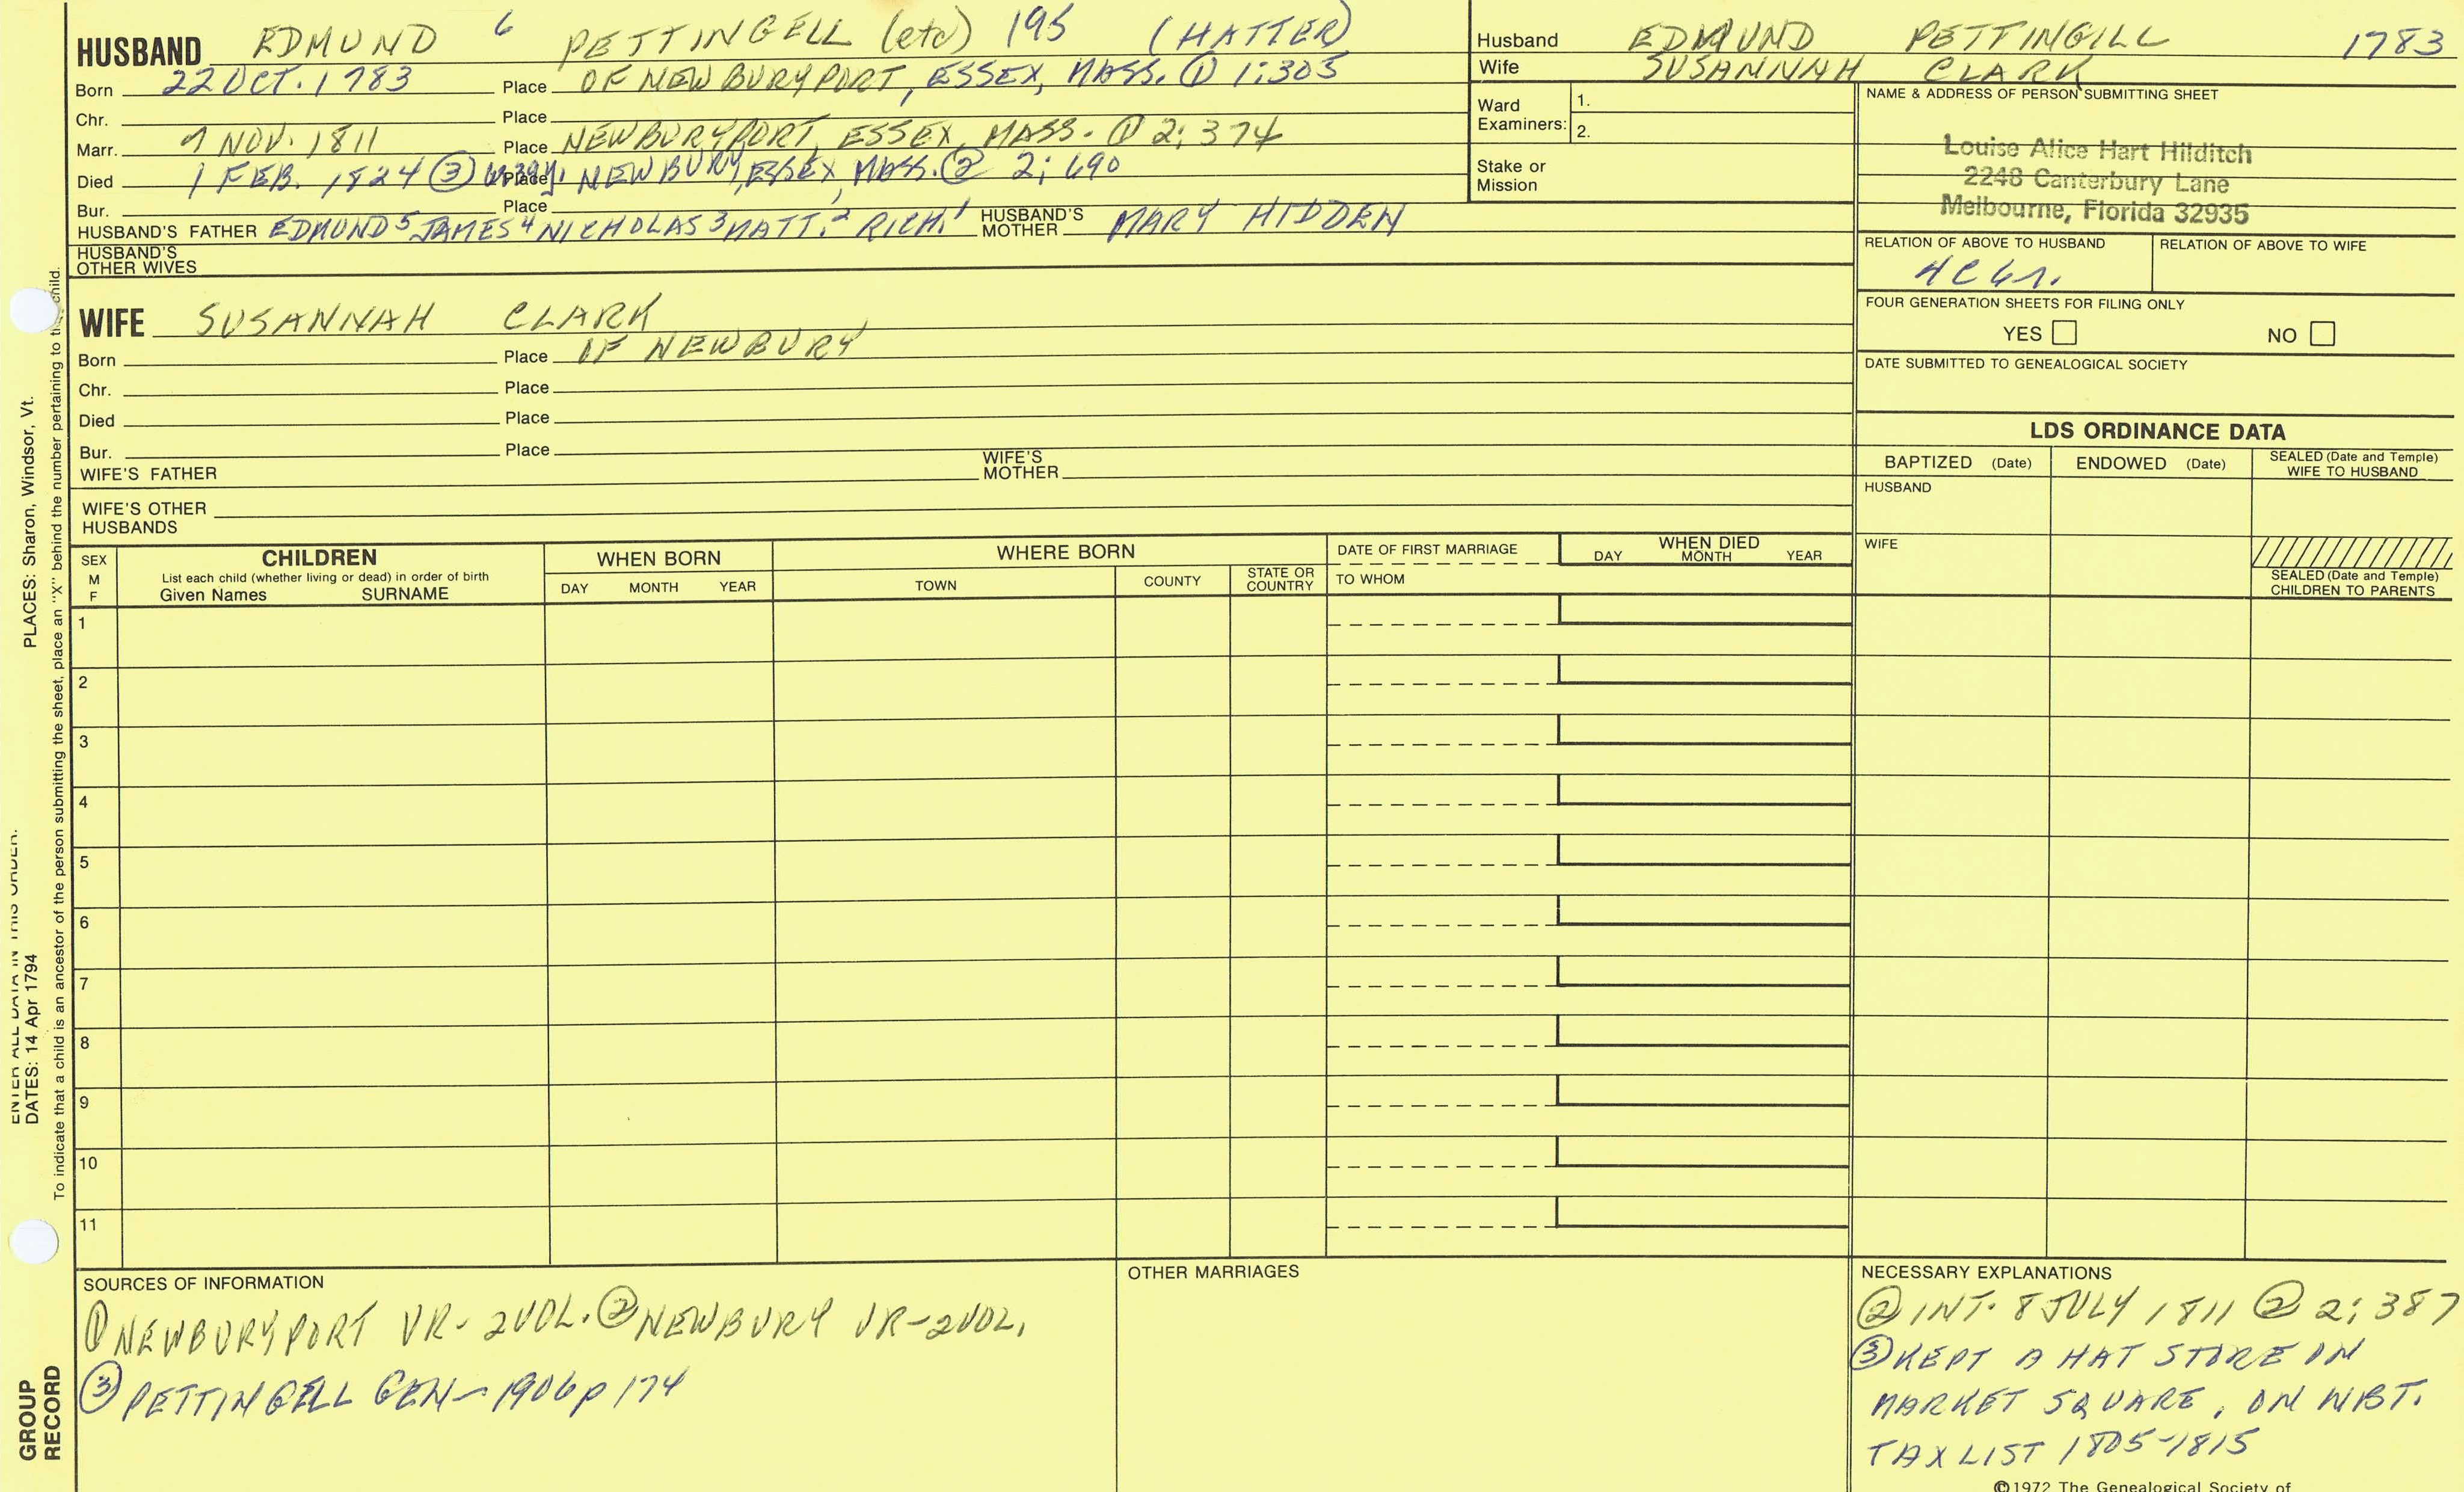 HUSBAND EDMUND 6 PETTINGELL (etc) 195 (HATTER)
Born 22 OCT. 1783 Place OF NEWBURYPORT, ESSEX, MASS. ① 1:305
Chr. Place
Marr. 7 NOV. 1811 Place NEWBURYPORT, ESSEX, MASS. ① 2:374
Died 1 FEB. 1824 ③ Place NEWBURY, ESSEX, MASS. ② 2:690
Bur. Place
HUSBAND'S FATHER EDMUND 5 JAMES 4 NICHOLAS 3 MATT. 2 RICH. 1 HUSBAND'S MOTHER MARY HIDDEN
HUSBAND'S OTHER WIVES
Husband EDMUND PETTINGILL 1783
Wife SUSANNAH CLARK
Ward Examiners: 1.
2.
Stake or Mission
NAME & ADDRESS OF PERSON SUBMITTING SHEET
Louise Alice Hart Hilditch
2248 Canterbury Lane
Melbourne, Florida 32935
RELATION OF ABOVE TO HUSBAND RELATION OF ABOVE TO WIFE
FOUR GENERATION SHEETS FOR FILING ONLY
YES NO
DATE SUBMITTED TO GENEALOGICAL SOCIETY
WIFE SUSANNAH CLARK
Born Place OF NEWBURY
Chr. Place
Died Place
Bur. Place
WIFE'S FATHER WIFE'S MOTHER
WIFE'S OTHER HUSBANDS
LDS ORDINANCE DATA
BAPTIZED (Date) ENDOWED (Date) SEALED (Date and Temple) WIFE TO HUSBAND
HUSBAND
WIFE
SEALED (Date and Temple) CHILDREN TO PARENTS
SEX M F
CHILDREN
List each child (whether living or dead) in order of birth
Given Names SURNAME
WHEN BORN
DAY MONTH YEAR
WHERE BORN
TOWN COUNTY STATE OR COUNTRY
DATE OF FIRST MARRIAGE
TO WHOM
WHEN DIED
DAY MONTH YEAR
1
2
3
4
5
6
7
8
9
10
11
SOURCES OF INFORMATION
① NEWBURYPORT VR- 2VOL. ② NEWBURY VR-2VOL.
③ PETTINGELL GEN- 1906 p 174
OTHER MARRIAGES
NECESSARY EXPLANATIONS
② INT. 8 JULY 1811 ② 2:387
③ KEPT A HAT STORE IN
MARKET SQUARE, ON NBT.
TAX LIST 1805-1815
©1972 The Genealogical Society of
PLACES: Sharon, Windsor, Vt.
To indicate that a child is an ancestor of the person submitting the sheet, place an "X" behind the number pertaining to child.
ENTER ALL DATA IN THIS ORDER:
DATES: 14 Apr 1794
GROUP
RECORD